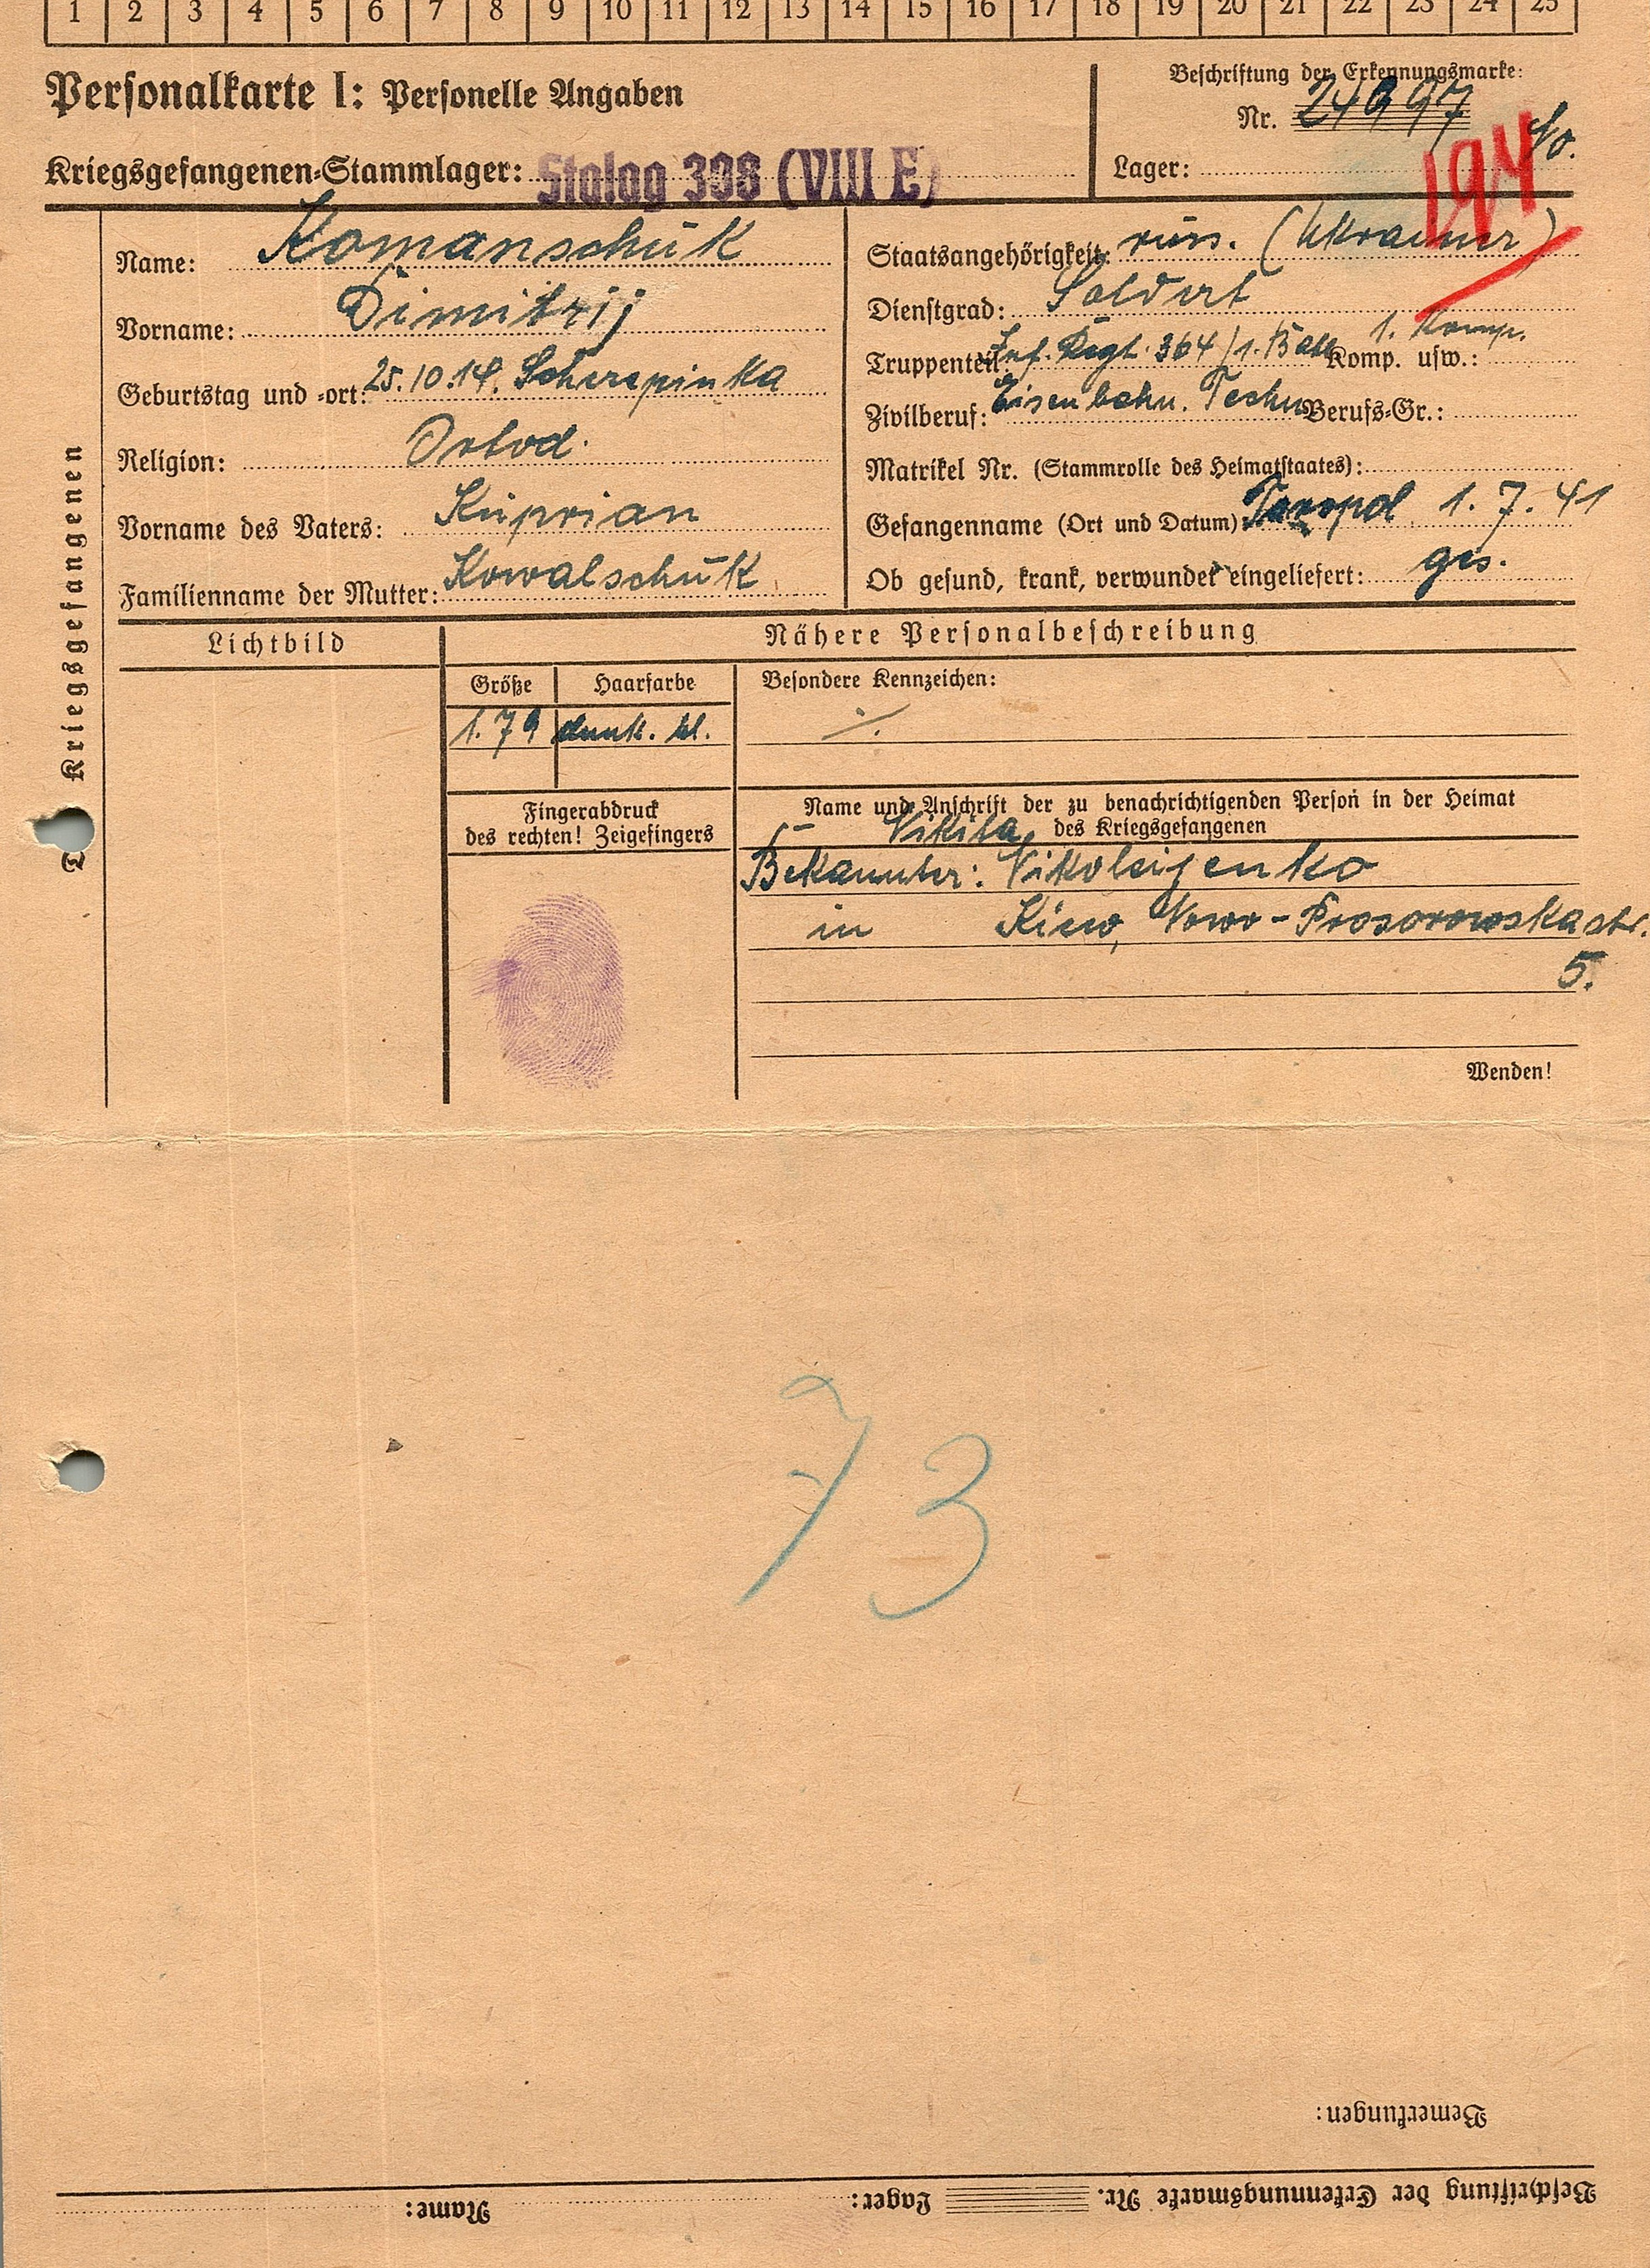 1 2 3 4 5 6 7 8 9 10 11 12 13 14 15 16 17 18 19 20 21 22 23 24 25
Personalkarte I: Personelle Angaben
Beschriftung der Erkennungsmarke:
Nr. 24997
Kriegsgefangenen-Stammlager: Stalag 308 (VIII E)
Lager:
194
Name: Komanschuk
Vorname: Dimitrij
Geburtstag und -ort: 25.10.14. Scherepinka
Religion: Ortod.
Vorname des Vaters: Kuprian
Familienname der Mutter: Kowalschuk
Staatsangehörigkeit: russ. (Ukrainer)
Dienstgrad: Soldat
Truppenteil: Inf. Regt. 364/1. Batl. Komp. usw.: 1. Komp.
Zivilberuf: Eisenbahn. Techn. Berufs-Gr.:
Matrikel Nr. (Stammrolle des Heimatstaates):
Gefangennahme (Ort und Datum): Taropol 1.7.41
Ob gesund, krank, verwundet eingeliefert: ges.
Kriegsgefangenen
Lichtbild
Nähere Personalbeschreibung
Größe
Haarfarbe
Besondere Kennzeichen:
1.79
dunk. bl.
./.
Fingerabdruck
des rechten! Zeigefingers
Name und Anschrift der zu benachrichtigenden Person in der Heimat
des Kriegsgefangenen
Nikita
Bekannter: Nikoleijenko
in Kiew, Nowo-Prosorowskastr.
5.
Wenden!
73
Bemerkungen:
Beschriftung der Erkennungsmarke Nr. Lager: Name: